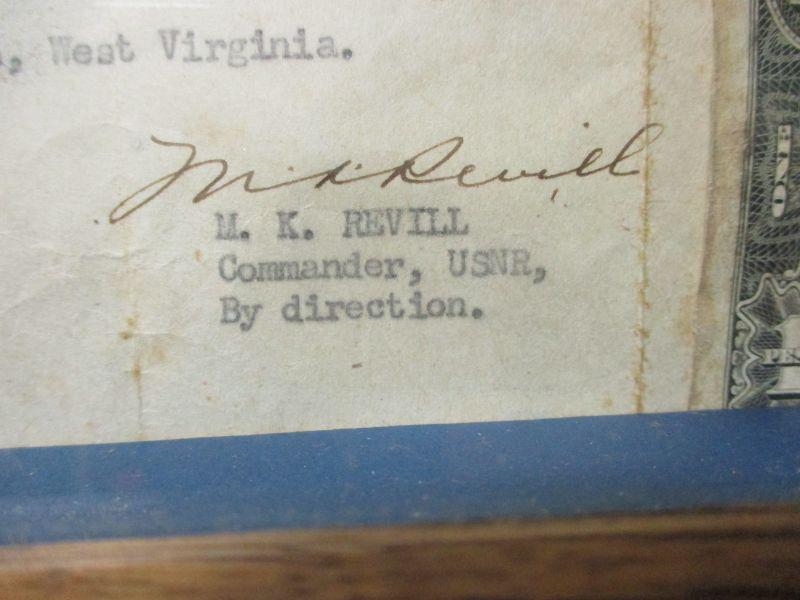 , West Virginia.
M. K. Revill
M. K. REVILL
Commander, USNR,
By direction.
ONE
1